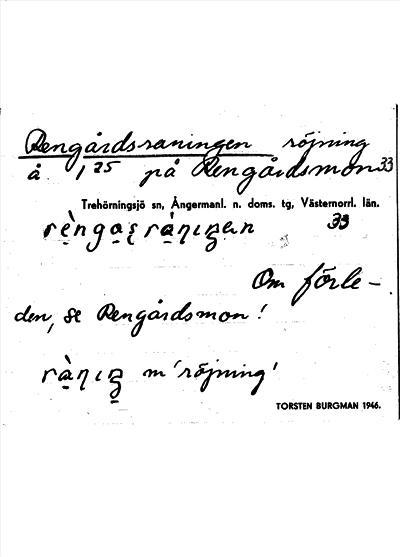 Rengårdsraningen röjning
å 1 25 på Rengårdsmon 33
Trehörningsjö sn, Ångermanl. n. doms. tg, Västernorrl. län.
33
Om förle-
den, se Rengårdsmon!
m 'röjning'
TORSTEN BURGMAN 1946.